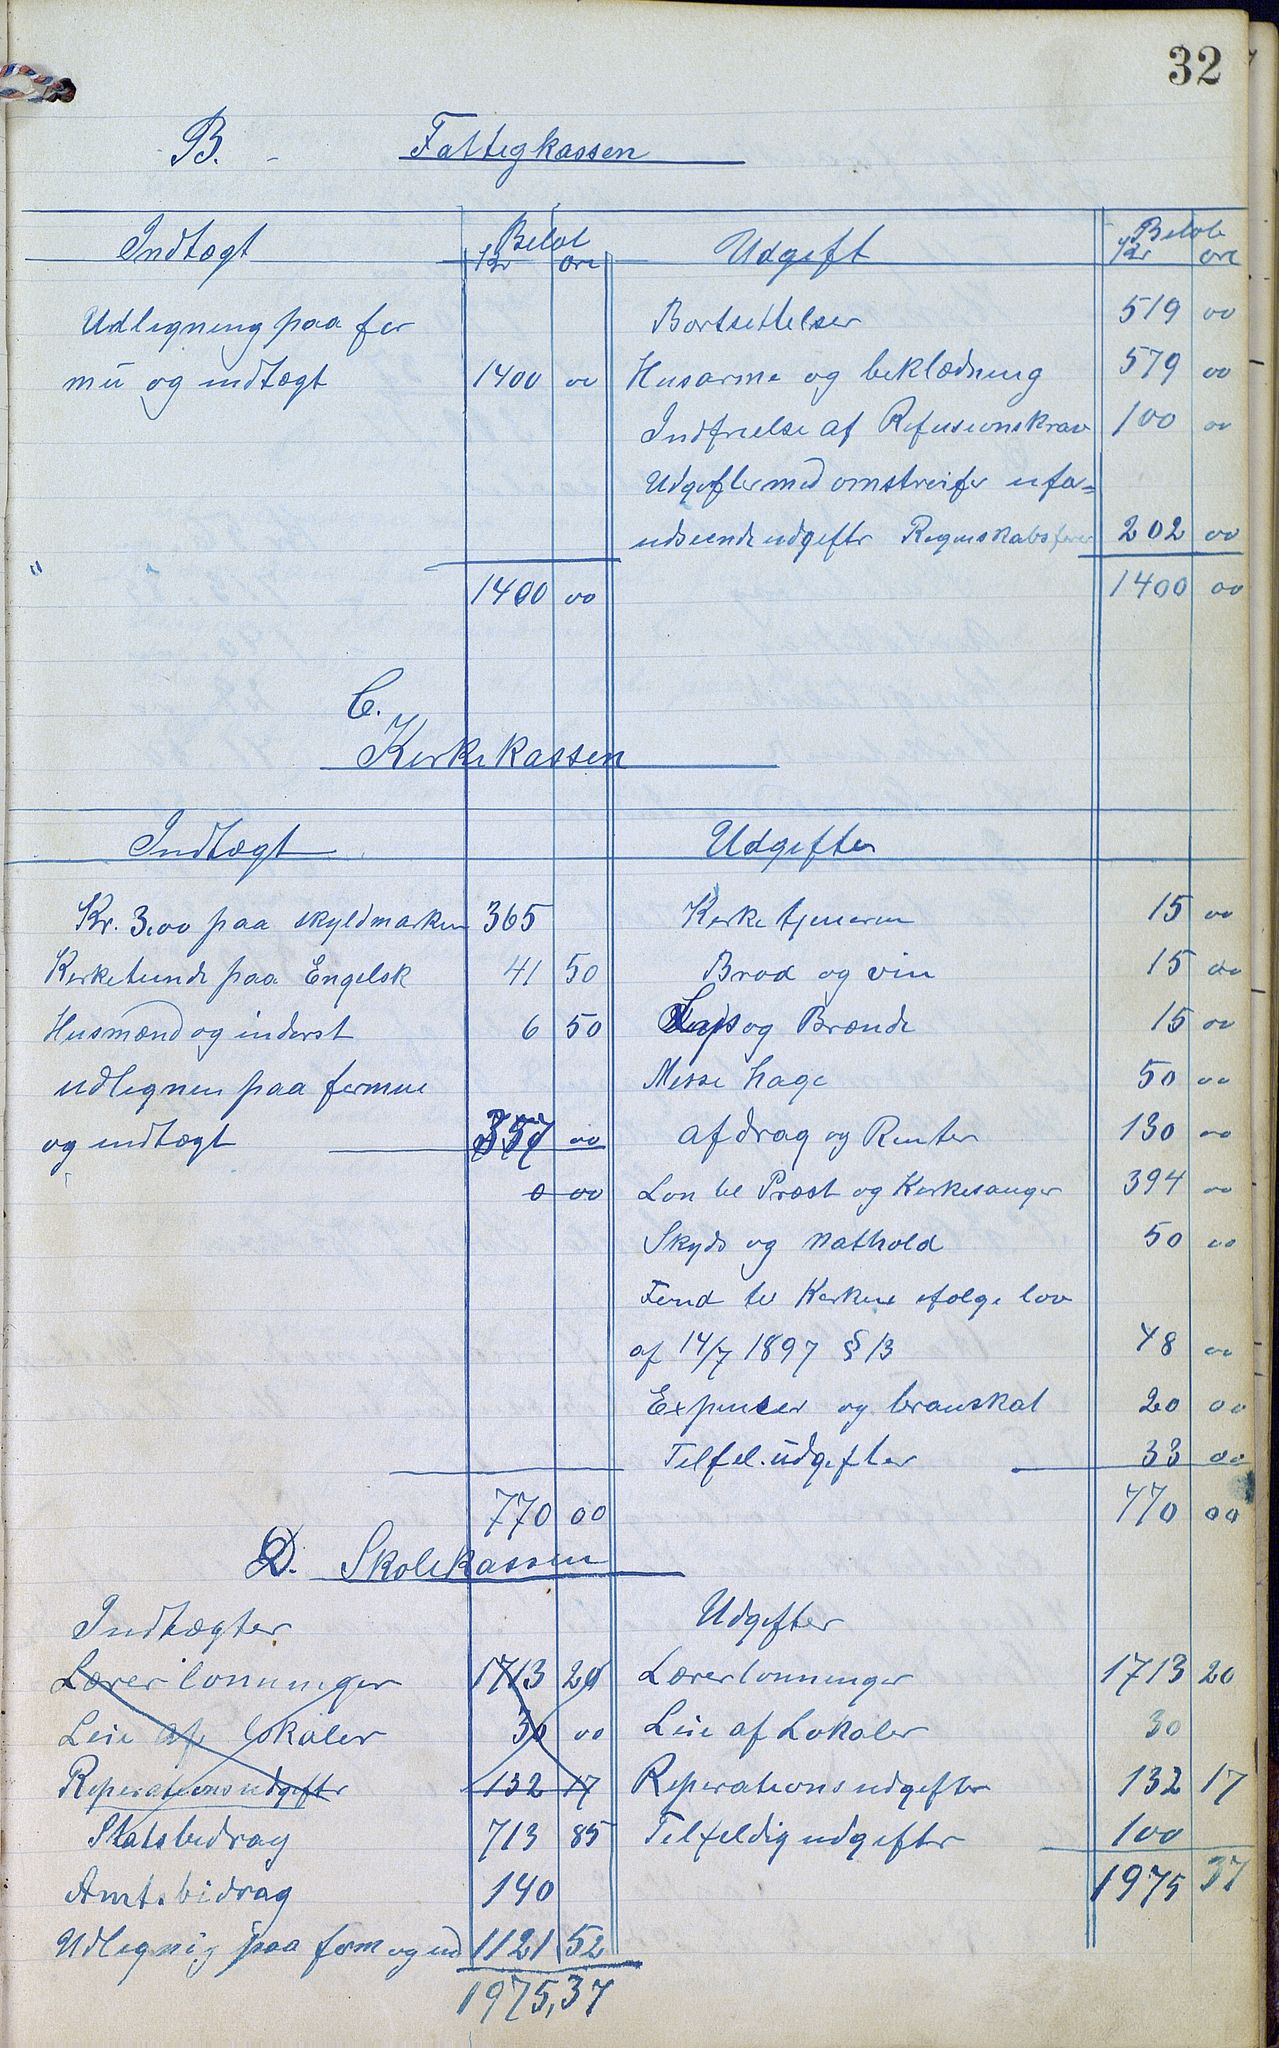 32
B. - Fattigkassen
Indtægt Beløb Udgift Beløb
Kr øre Kr øre
Udligning paa for Bortsettelser 519 00
mu og indtægt 1400 00 Husarme og beklædning 579 00
Indfrielse af Refusionskrav 100 00
Udgifter med omstreifer ufor=
udseende udgifter Regnskabsfører 202 00
1400 00 1400 00
C.
Kirkekassen
Indtægt Udgifter
Kr. 3.00 paa skyldmarken 365 Kirketjeneren 15 00
Kirketiende paa Engelsk 41 50 Brød og vin 15 00
Husmænd og inderst 6 50 Lys og Brænde 15 00
udlignen paa formue Messe hage 50 00
og indtægt 357 00 afdrag og Renter 130 00
0 00 Løn til Præst og Kirkesanger 394 00
Skyds og Nathold 50 00
Fond til Kirken ifølge lov
af 14/7 1897 § 13 48 00
Expenser og branskat 20 00
Tilfel. udgifter 33 00
770 00 770 00
D. Skolekassen
Indtægter Udgifter
Lærerlønninger 1713 20 Lærerlønninger 1713 20
Leie af lokaler 30 00 Leie af Lokaler 30
Reperationsudgifter 132 17 Reperationsudgifter 132 17
Statsbidrag 713 85 Tilfeldig udgifter 100
Amtsbidrag 140 1975 37
Udligni, paa form og ind 1121 52
1975,37